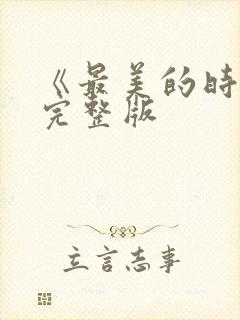 《最美的时
完整版
立言志事